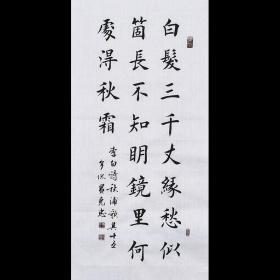 白髮三千丈緣愁似
箇長不知明鏡里何
處得秋霜
李白詩秋浦歌其十五